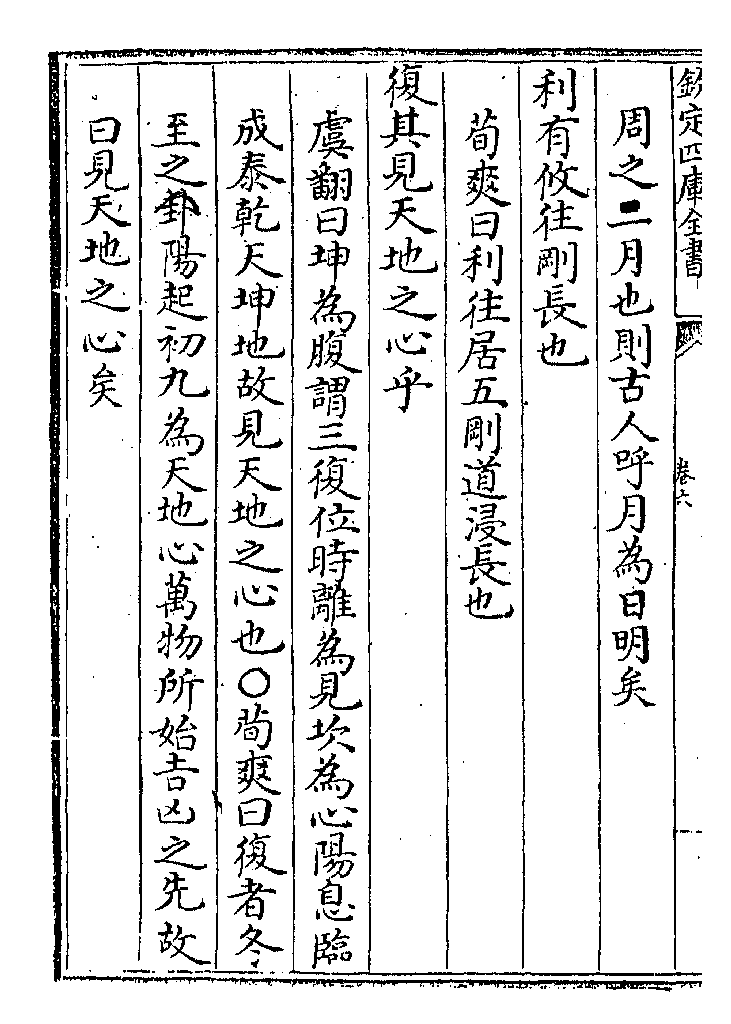 欽定四庫全書
卷六
周之二月也則古人呼月為日明矣
利有攸往剛長也
荀爽曰利往居五剛道浸長也
復其見天地之心乎
虞翻曰坤為腹謂三復位時離為見坎為心陽息臨
成泰乾天坤地故見天地之心也○荀爽曰復者冬
至之卦陽起初九為天地心萬物所始吉凶之先故
曰見天地之心矣